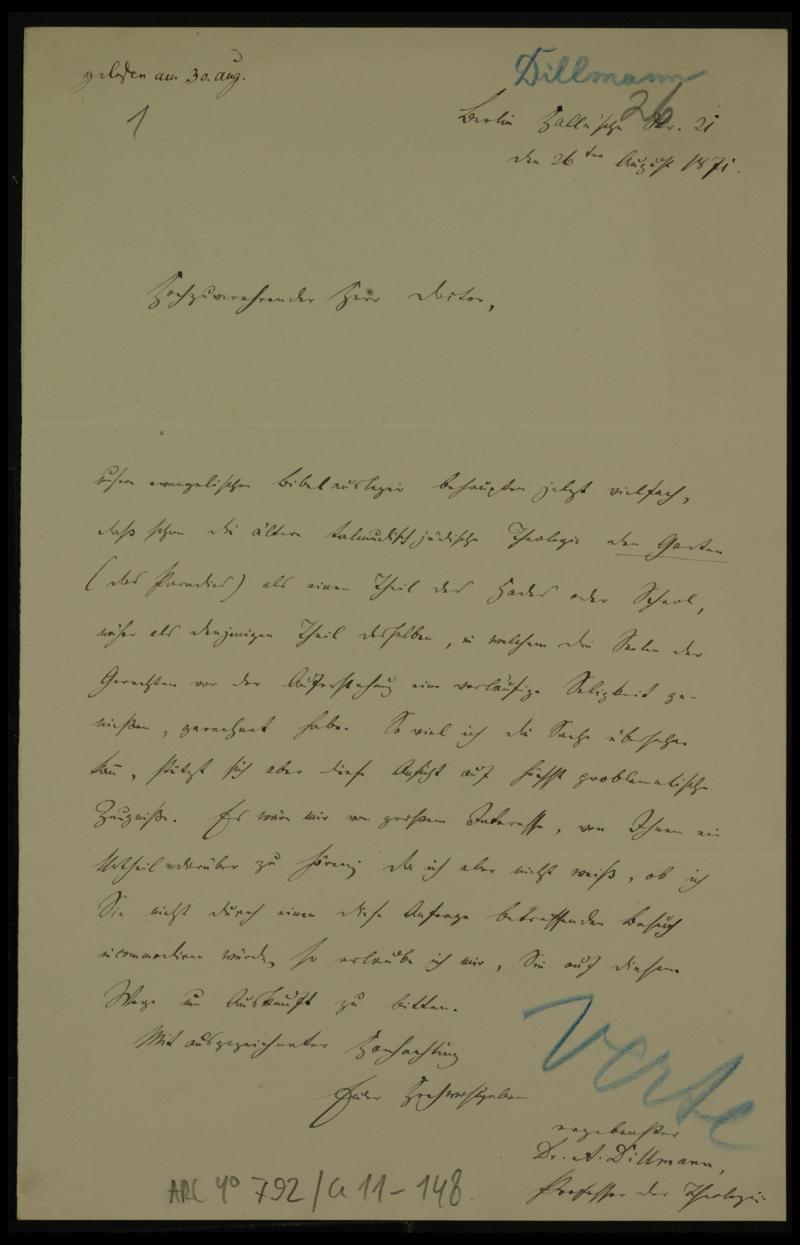 gelesen am 30. Aug.
Dillmann
1
26
Berlin Hallesche Str. 21
den 26ten August 1871.
Hochzuverehrender Herr Doctor,
unsere evangelischen Bibelausleger behaupten jetzt vielfach,
daß schon die ältere talmudisch jüdische Theologie den Garten
(das Paradies) als einen Theil des Hades oder Scheol,
näher als denjenigen Theil desselben, in welchem die Seelen der
Gerechten vor der Auferstehung eine vorläufige Seligkeit ge-
nießen, gerechnet habe. So viel ich die Sache übersehen
kann, stützt sich aber diese Ansicht auf höchst problematische
Zeugniße. Es wäre mir von großem Interesse, von Ihnen ein
Urtheil darüber zu hören; da ich aber nicht weiß, ob ich
Sie nicht durch einen diese Anfrage betreffenden Besuch
incommodiren würde, so erlaube ich mir, Sie auf diesem
Wege um Auskunft zu bitten.
Mit ausgezeichneter Hochachtung
Euer Hochwohlgeboren
Verte
ergebenster
Dr. A. Dillmann,
Professor der Theologie
ARC 4° 792/G 11-148